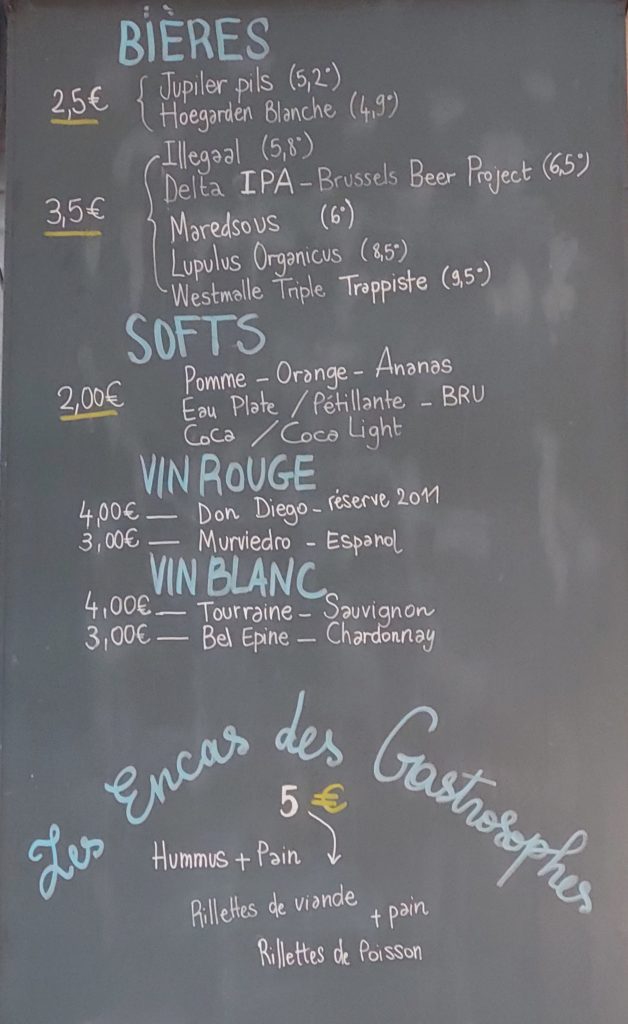 BIÈRES
2,5€ { Jupiler pils (5,2°)
Hoegarden Blanche (4,9°)
Illegaal (5,8°)
Delta IPA – Brussels Beer Project (6,5°)
3,5€ { Maredsous (6°)
Lupulus Organicus (8,5°)
Westmalle Triple Trappiste (9,5°)
SOFTS
Pomme – Orange – Ananas
2,00€ Eau Plate / Pétillante – BRU
Coca / Coca Light
VIN ROUGE
4,00€ — Don Diego – réserve 2011
3,00€ — Murviedro – Espanol
VIN BLANC
4,00€ — Tourraine – Sauvignon
3,00€ — Bel Epine – Chardonnay
Les Encas des Gastrosophes
5 €
Hummus + Pain
Rillettes de viande + pain
Rillettes de Poisson